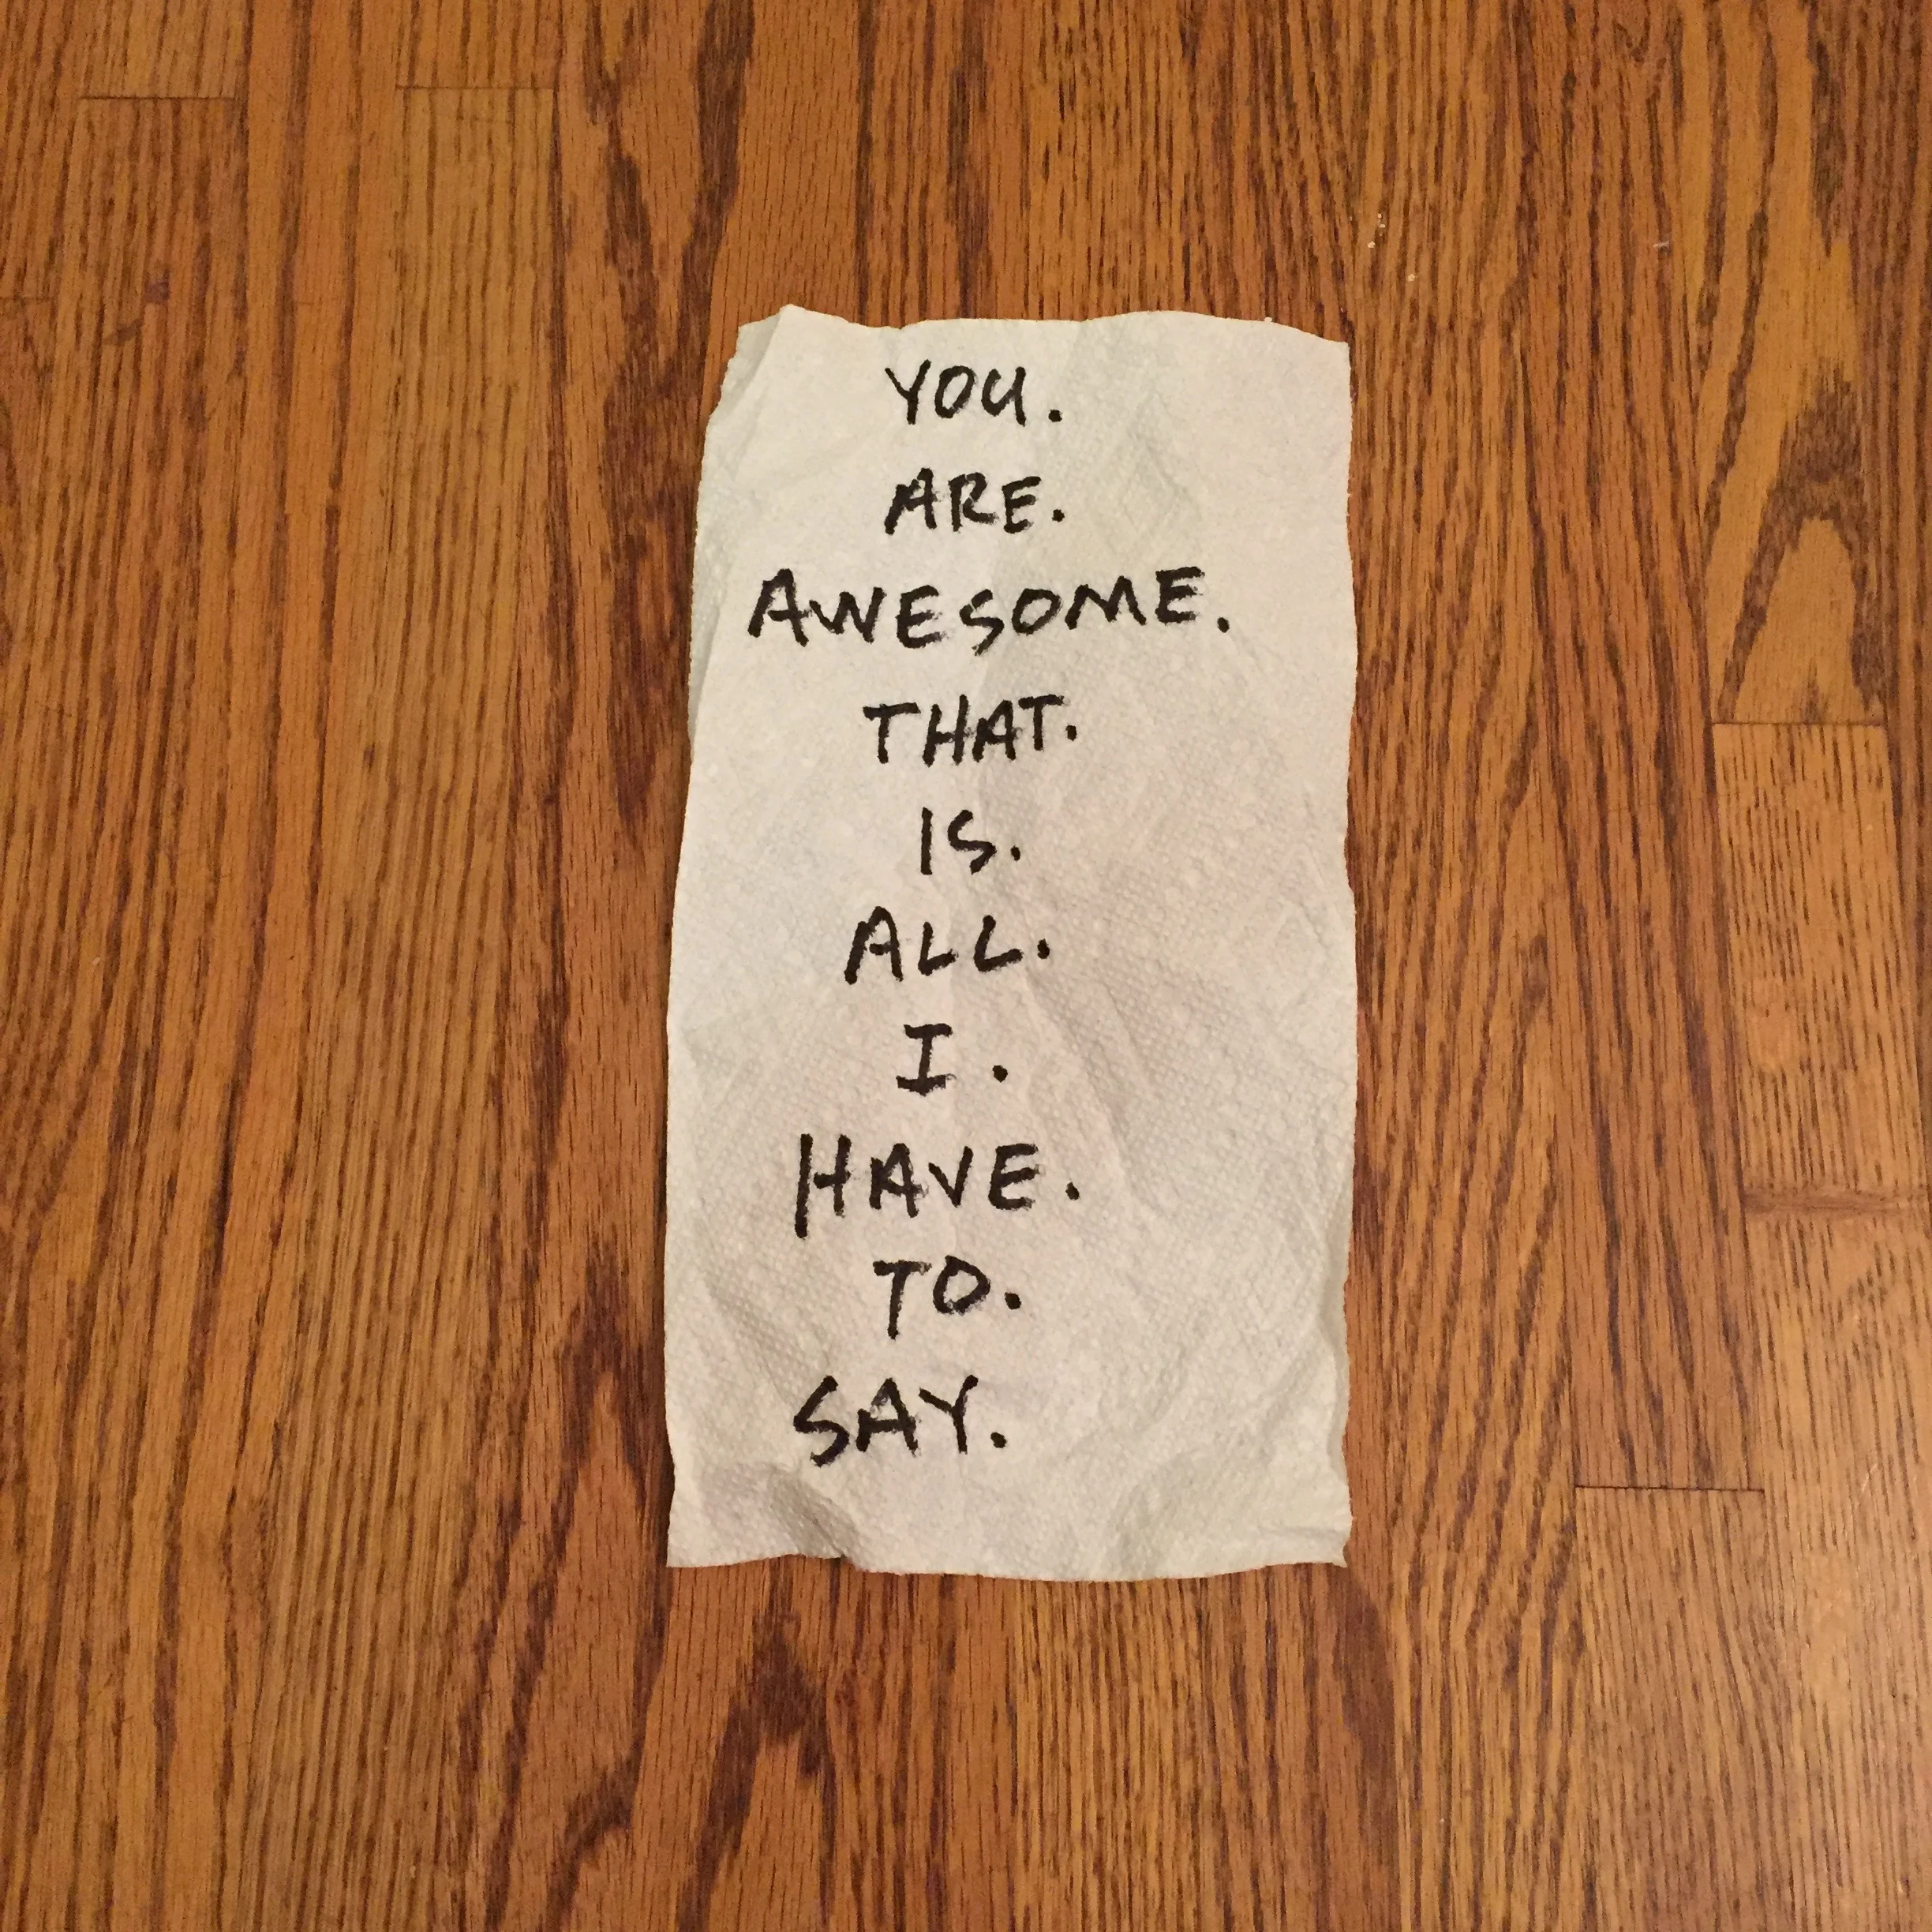 YOU.
ARE.
AWESOME.
THAT.
IS.
ALL.
I.
HAVE.
TO.
SAY.